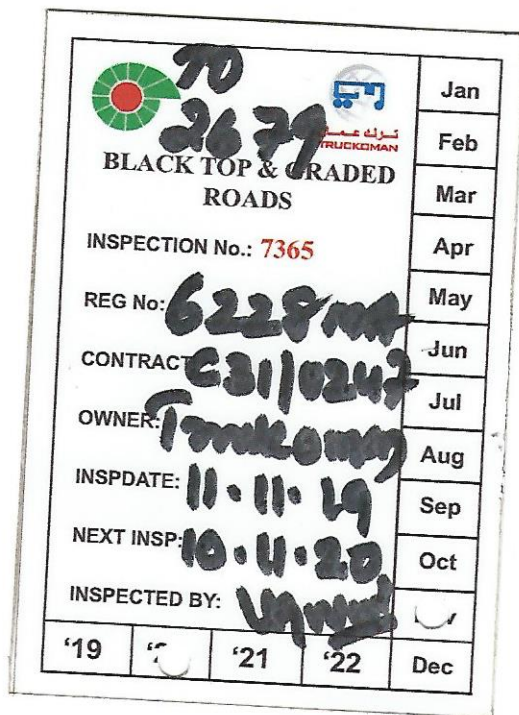 TO
2679
ترك عمان
TRUCKOMAN
BLACK TOP & GRADED
ROADS
INSPECTION No.: 7365
REG No: 6228 MA
CONTRACT C31/0247
OWNER: Truckoman
INSPDATE: 11.11.19
NEXT INSP: 10.11.20
INSPECTED BY:
Jan
Feb
Mar
Apr
May
Jun
Jul
Aug
Sep
Oct
Dec
'19 '21 '22